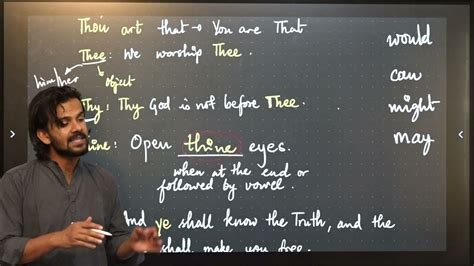 Thou art that → You are That
Thee: We worship Thee.
him/her object
Thy: Thy God is not before Thee.
Thine: Open thine eyes.
when at the end or
followed by vowel.
And ye shall know the Truth, and the
shall make you free.
would
can
might
may